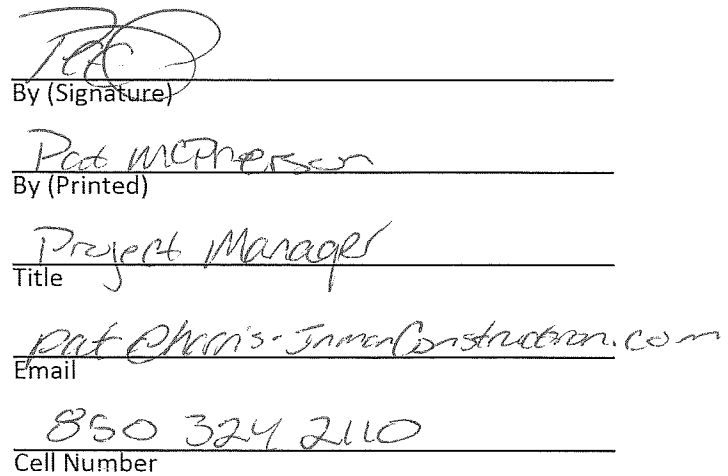 By (Signature)
Pat McPherson
By (Printed)
Project Manager
Title
pat@harris-InmanConstruction.com
Email
850 324 2110
Cell Number